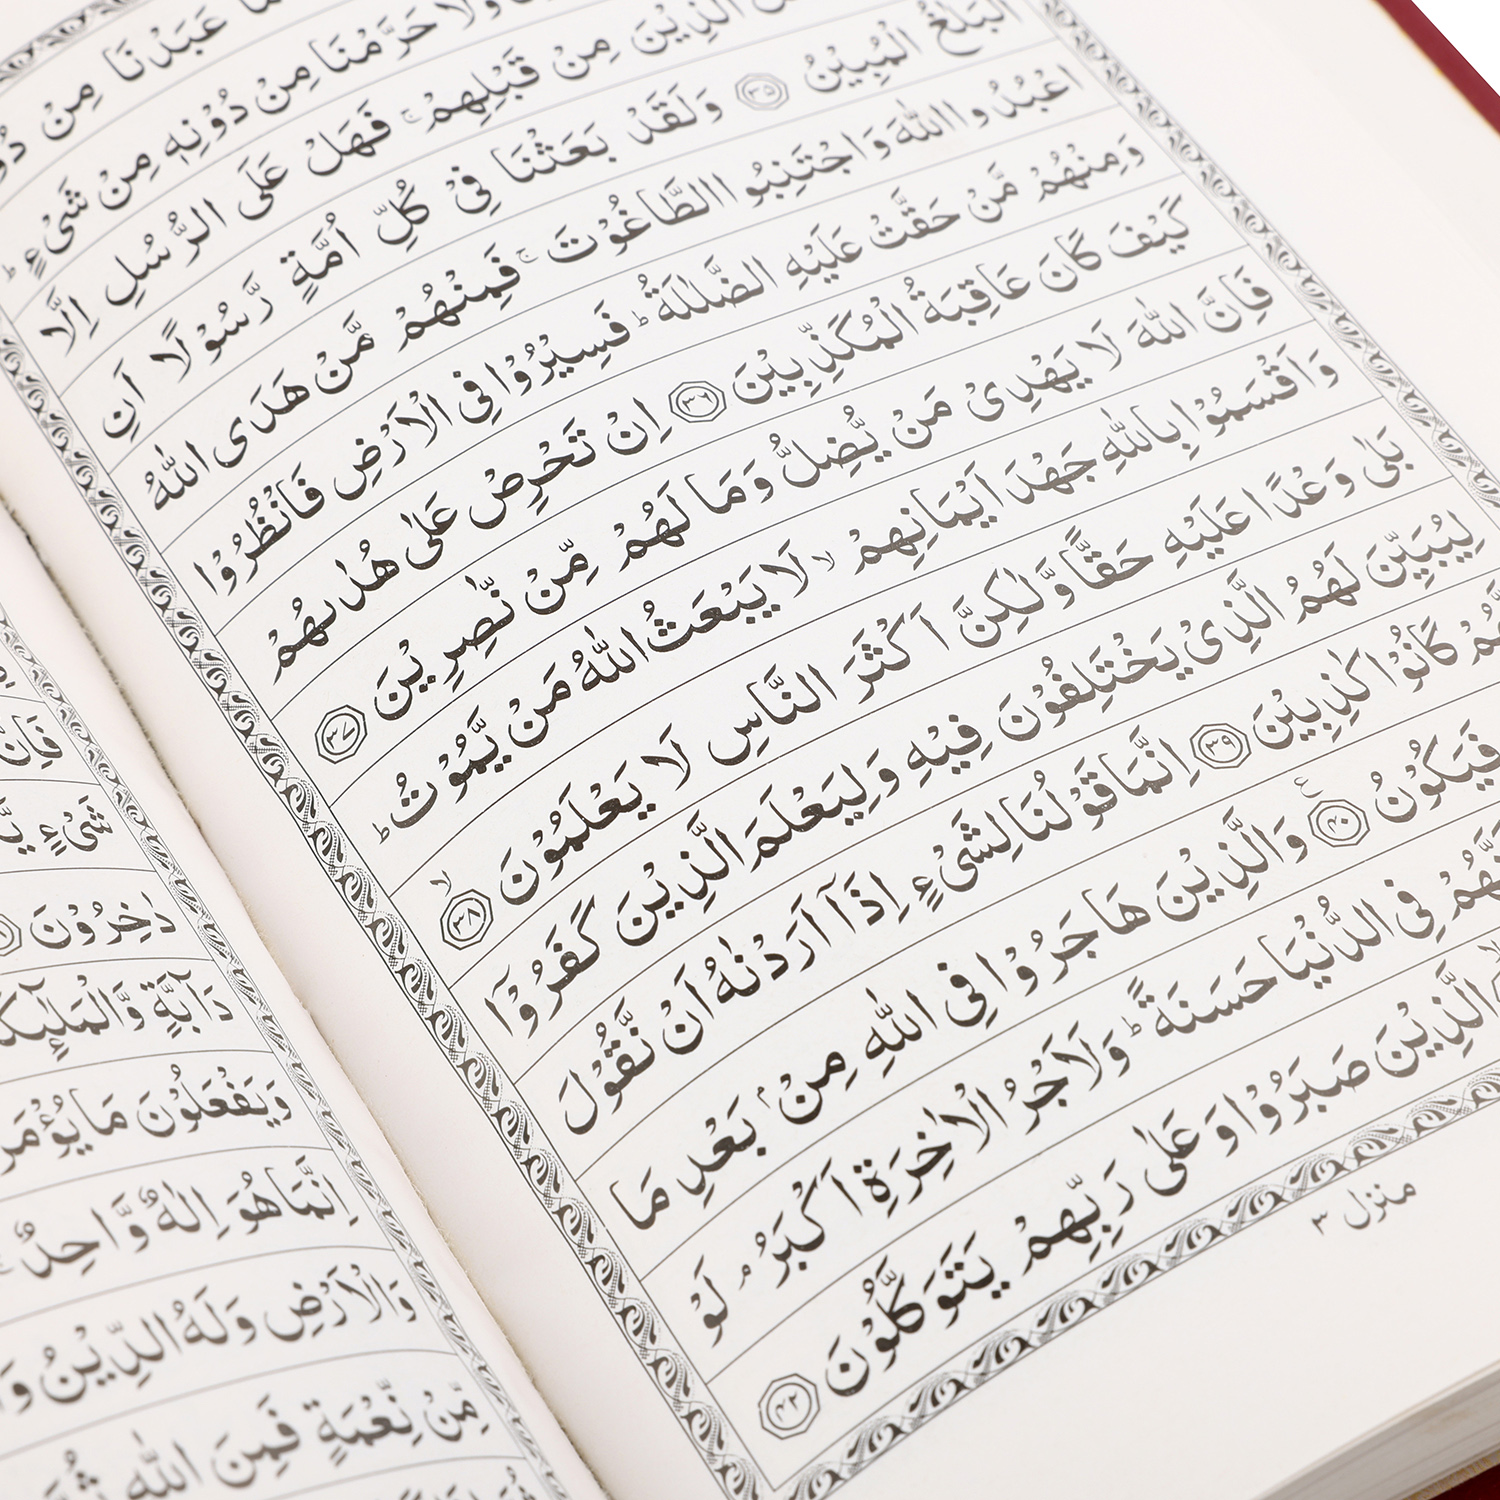 عَبَدْنَا مِنْ
وَلَا حَرَّمْنَا مِنْ دُوْنِهٖ مِنْ شَیْءٍ ؕ
الَّذِيْنَ مِنْ قَبْلِهِمْ ۚ فَهَلْ عَلَى الرُّسُلِ اِلَّا
الْبَلٰغُ الْمُبِيْنُ ﴿۳۵﴾ وَلَقَدْ بَعَثْنَا فِیْ كُلِّ اُمَّةٍ رَّسُوْلًا اَنِ
اعْبُدُوا اللّٰهَ وَاجْتَنِبُوا الطَّاغُوْتَ ۚ فَمِنْهُمْ مَّنْ هَدَى اللّٰهُ
وَمِنْهُمْ مَّنْ حَقَّتْ عَلَيْهِ الضَّلٰلَةُ ؕ فَسِيْرُوْا فِى الْاَرْضِ فَانْظُرُوْا
كَيْفَ كَانَ عَاقِبَةُ الْمُكَذِّبِيْنَ ﴿۳۶﴾ اِنْ تَحْرِصْ عَلٰى هُدٰىهُمْ
فَاِنَّ اللّٰهَ لَا يَهْدِیْ مَنْ يُّضِلُّ وَمَا لَهُمْ مِّنْ نّٰصِرِيْنَ ﴿۳۷﴾
وَاَقْسَمُوْا بِاللّٰهِ جَهْدَ اَيْمَانِهِمْ ۙ لَا يَبْعَثُ اللّٰهُ مَنْ يَّمُوْتُ ؕ
بَلٰى وَعْدًا عَلَيْهِ حَقًّا وَّلٰكِنَّ اَكْثَرَ النَّاسِ لَا يَعْلَمُوْنَ ﴿۳۸﴾ ۙ
لِيُبَيِّنَ لَهُمُ الَّذِیْ يَخْتَلِفُوْنَ فِيْهِ وَلِيَعْلَمَ الَّذِيْنَ كَفَرُوْۤا
كَانُوْا كٰذِبِيْنَ ﴿۳۹﴾ اِنَّمَا قَوْلُنَا لِشَیْءٍ اِذَاۤ اَرَدْنٰهُ اَنْ نَّقُوْلَ
فَيَكُوْنُ ﴿۴۰﴾ ع وَالَّذِيْنَ هَاجَرُوْا فِى اللّٰهِ مِنْۢ بَعْدِ مَا
فِى الدُّنْيَا حَسَنَةً ؕ وَلَاَجْرُ الْاٰخِرَةِ اَكْبَرُ ۘ لَوْ
الَّذِيْنَ صَبَرُوْا وَعَلٰى رَبِّهِمْ يَتَوَكَّلُوْنَ ﴿۴۲﴾
منزل ۳
شَیْءٍ
دٰخِرُوْنَ
دَآبَّةٍ
وَيَفْعَلُوْنَ مَا
اِنَّمَا هُوَ اِلٰهٌ وَّاحِدٌ
وَالْاَرْضِ وَلَهُ الدِّيْنُ
مِّنْ نِّعْمَةٍ فَمِنَ اللّٰهِ